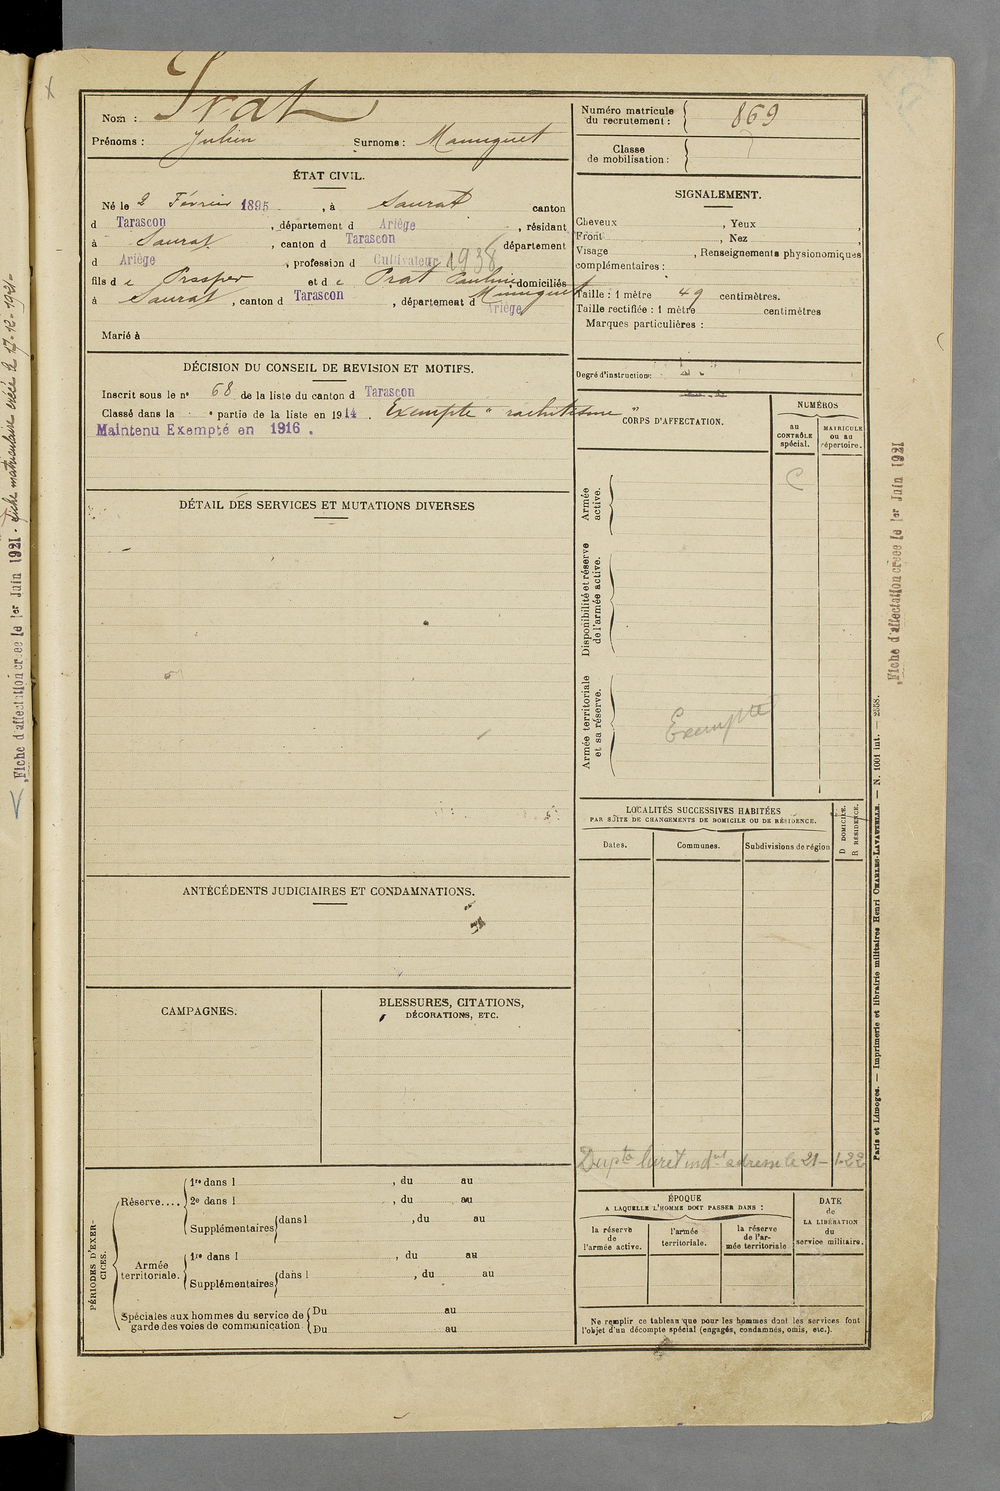 Nom : Prat
Prénoms : Julien Surnoms : Mounguet
ÉTAT CIVIL.
Né le 2 Février 1895, à Saurat canton
d Tarascon, département d Ariège, résidant
à Saurat, canton d Tarascon département
d Ariège, profession d Cultivateur 1938
fils d e Prosper et d e Prat Pauline domiciliés
Mounguet
à Saurat, canton d Tarascon, département d Ariège
Marié à
DÉCISION DU CONSEIL DE REVISION ET MOTIFS.
Inscrit sous le n° 68 de la liste du canton d Tarascon
Classé dans la e partie de la liste en 1914. Exempté "rachitisme"
Maintenu Exempté en 1916.
DÉTAIL DES SERVICES ET MUTATIONS DIVERSES
ANTÉCÉDENTS JUDICIAIRES ET CONDAMNATIONS.
CAMPAGNES.
BLESSURES, CITATIONS,
DÉCORATIONS, ETC.
PÉRIODES D'EXERCICES.
Réserve....
1re dans l , du au
2e dans l , du au
Supplémentaires dans l , du au
Armée
territoriale.
1re dans l , du au
Supplémentaires dans l , du au
Spéciales aux hommes du service de
garde des voies de communication
Du au
Du au
Numéro matricule
du recrutement : 869
Classe
de mobilisation :
SIGNALEMENT.
Cheveux , Yeux ,
Front , Nez ,
Visage , Renseignements physionomiques
complémentaires :
Taille : 1 mètre 49 centimètres.
Taille rectifiée : 1 mètre centimètres
Marques particulières :
Degré d'instruction:
CORPS D'AFFECTATION.
NUMÉROS
au
CONTRÔLE
spécial.
MATRICULE
ou au
répertoire.
Armée
active.
C
Disponibilité et réserve
de l'armée active.
Armée territoriale
et sa réserve.
Exempté
LOCALITÉS SUCCESSIVES HABITÉES
PAR SUITE DE CHANGEMENTS DE DOMICILE OU DE RÉSIDENCE.
Dates.
Communes.
Subdivisions de région
D DOMICILE.
R RÉSIDENCE.
Dupta livret indel adressé le 21-1-22
ÉPOQUE
A LAQUELLE L'HOMME DOIT PASSER DANS :
la réserve
de
l'armée active.
l'armée
territoriale.
la réserve
de l'ar-
mée territoriale
DATE
de
LA LIBÉRATION
du
service militaire.
Ne remplir ce tableau que pour les hommes dont les services font
l'objet d'un décompte spécial (engagés, condamnés, omis, etc.).
Paris et Limoges. — Imprimerie et librairie militaires Henri CHARLES-LAVAUZELLE. — N. 1001 int. — 2558.
Fiche d'affectation créée le 1er Juin 1921
Fiche d'affectation créée le 1er Juin 1921. Fiche matriculaire créée le 17-12-1921